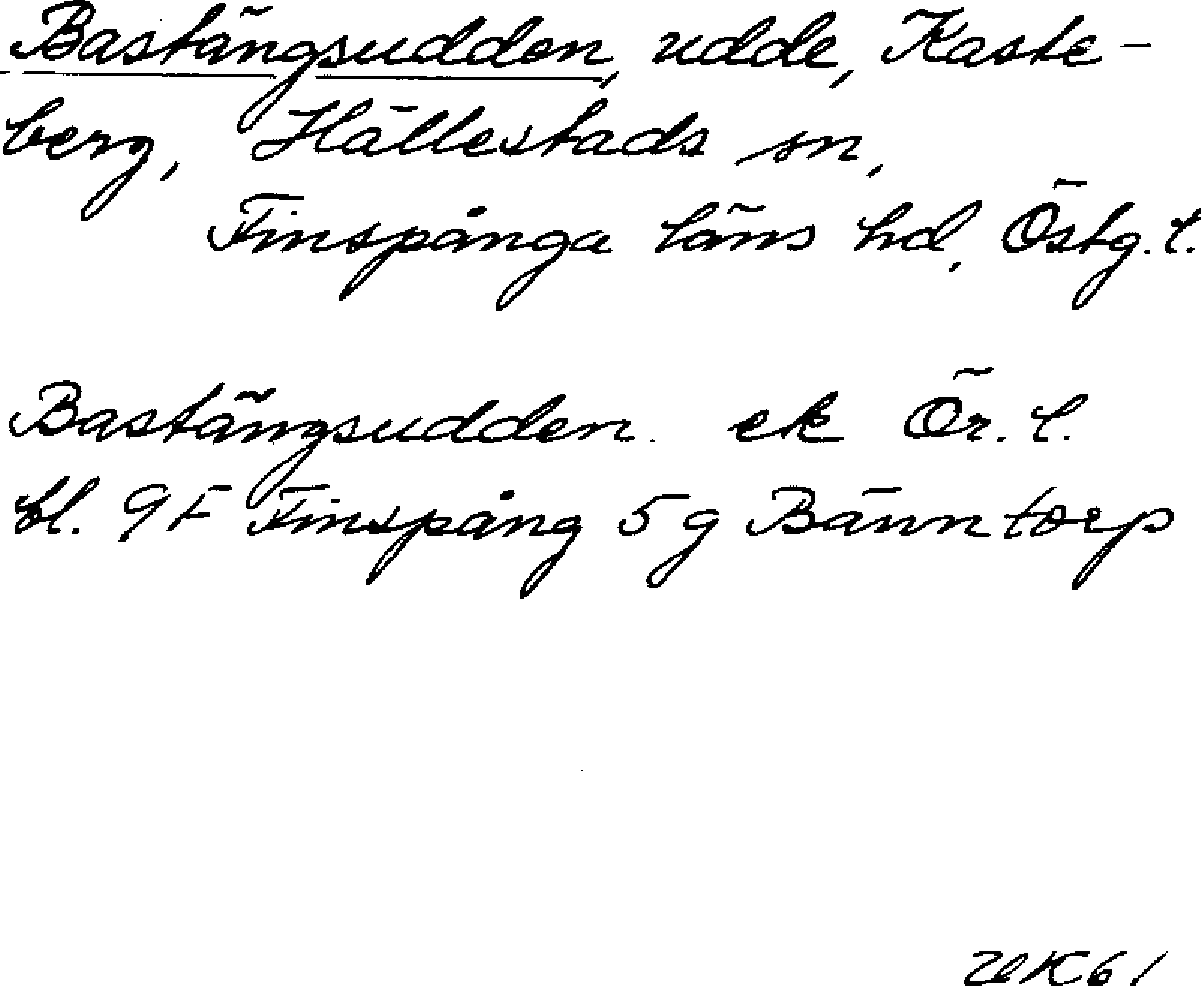 Bastängsudden, udde, Kaste-
berg, Hällestads sn,
Finspånga läns hd, Östg. l.
Bastängsudden. ek Ör. l.
bl. 9F Finspång 5g Bänntorp
UK61